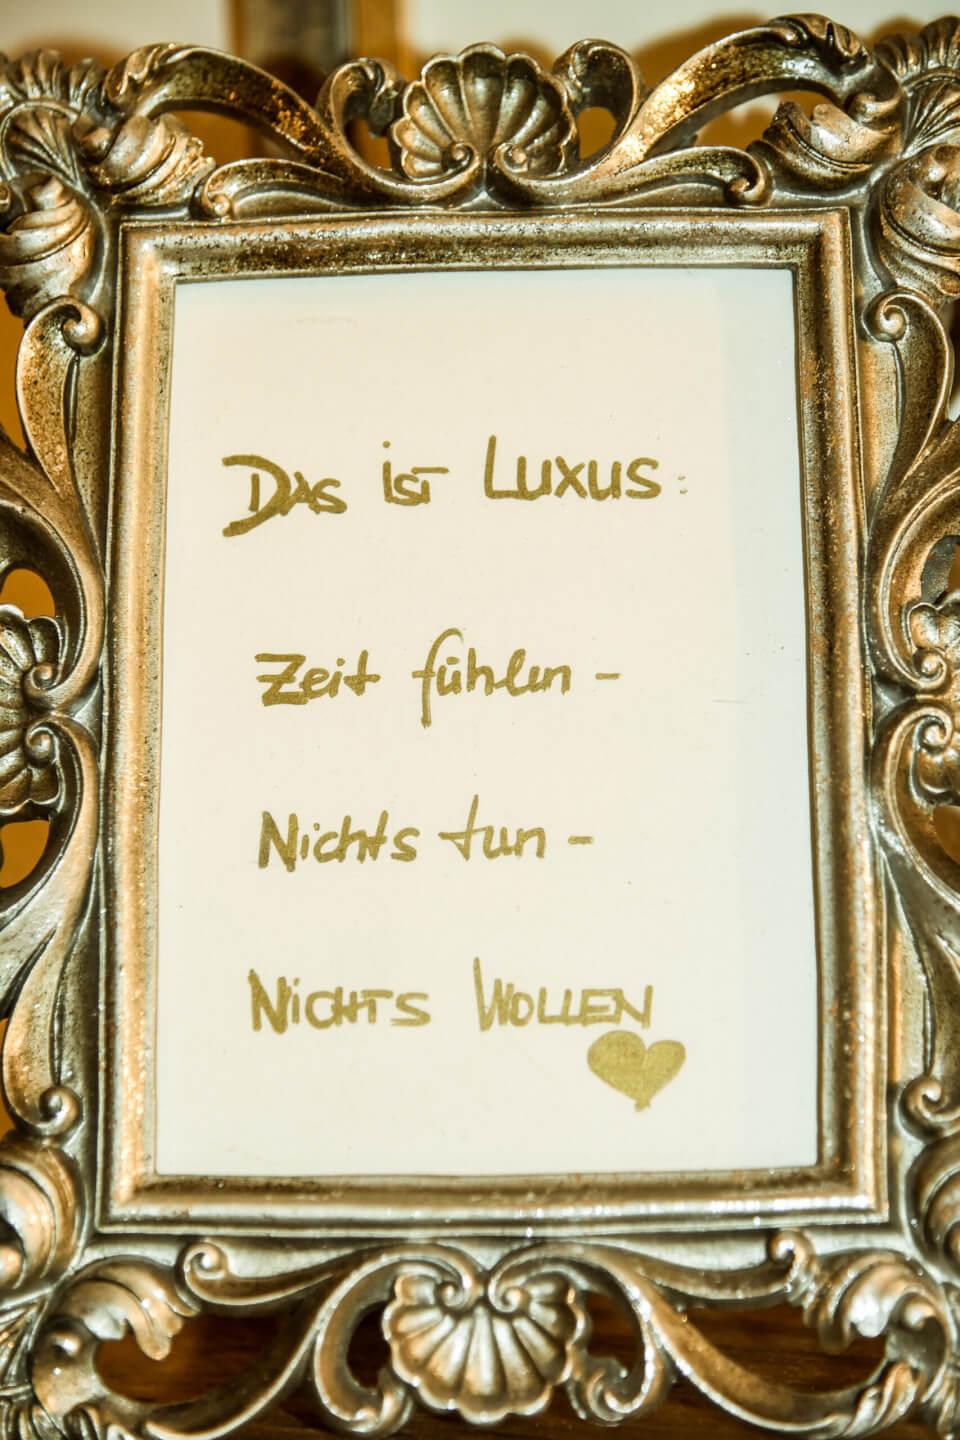 DAS iST LUXUS:
Zeit fühlen -
Nichts tun -
NiCHTS WOLLEN